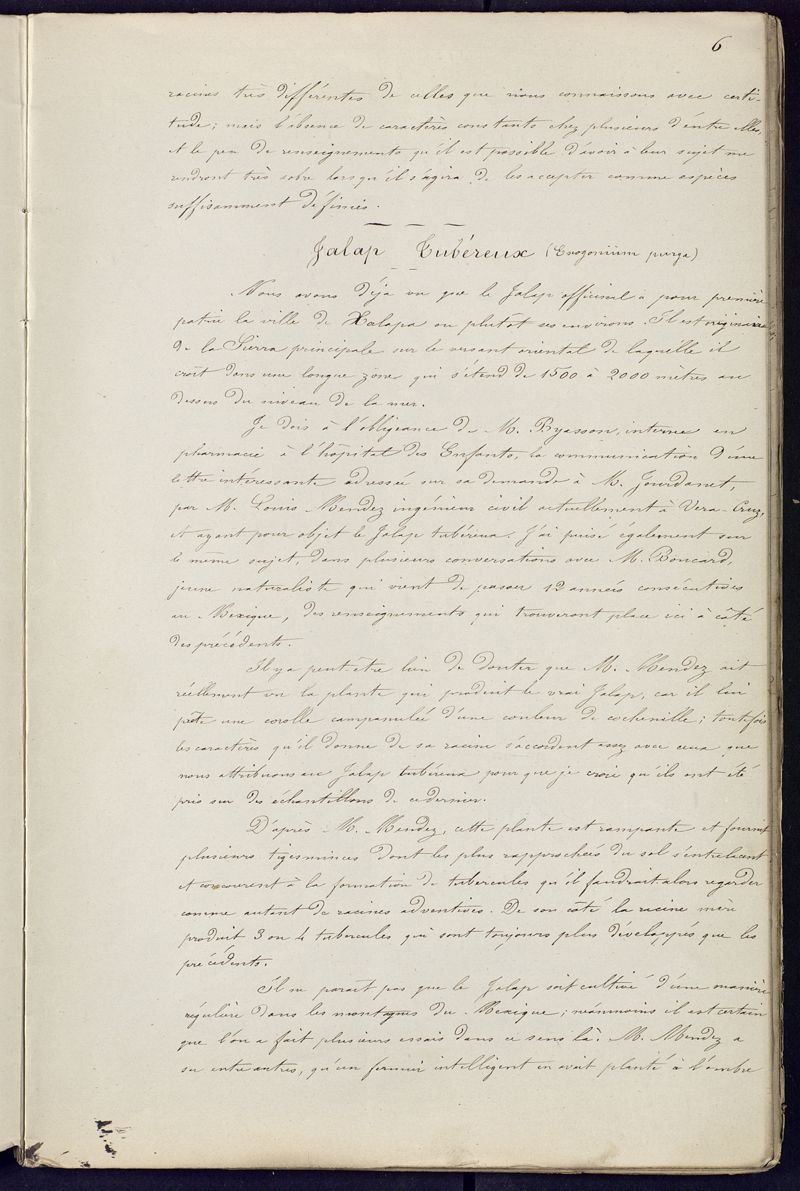 6
racines très différentes de celles que nous connaissons avec certi-
tude; mais l'absence de caractères constants chez plusieurs d'entre elles,
et le peu de renseignements qu'il est possible d'avoir à leur sujet me
rendront très sobre lorsqu'il s'agira de les accepter comme espèces
suffisamment définies.
Jalap Tubéreux (Exogonium purga)
Nous avons déjà vu que le Jalap officinal a pour première
patrie la ville de Xalapa ou plutot ses environs. Il est originaire
de la Sierra principale sur le versant oriental de laquelle il
croît dans une longue zône qui s'étend de 1500 à 2000 mètres au
dessus du niveau de la mer.
Je dois à l'obligeance de M. Byasson, interne en
pharmacie à l'hôpital des Enfants, la communication d'une
lettre intéressante adressée sur sa demande à M. Jourdanet,
par M. Louis Mendez ingénieur civil actuellement à Vera-Cruz,
et ayant pour objet le Jalap tubéreux. J'ai puisé également sur
le même sujet, dans plusieurs conversations avec M. Boucard,
jeune naturaliste qui vient de passer 12 années consécutives
au Mexique, des renseignements qui trouveront place ici à côté
des précédents.
Il y a peut-être lieu de douter que M. Mendez ait
réellement vu la plante qui produit le vrai Jalap, car il lui
prête une corolle campanulée d'une couleur de cochenille; toutefois
les caractères qu'il donne de sa racine s'accordent assez avec ceux que
nous attribuons au Jalap tubéreux pour que je croie qu'ils ont été
pris sur des échantillons de ce dernier.
D'après M. Mendez, cette plante est rampante et fournit
plusieurs tiges minces dont les plus rapprochées du sol s'entrelacent
et concourent à la formation de tubercules qu'il faudrait alors regarder
comme autant de racines adventives. De son côté la racine mère
produit 3 ou 4 tubercules qui sont toujours plus développés que les
précédents.
Il ne paraît pas que le Jalap soit cultivé d'une manière
régulière dans les montagnes du Mexique; néanmoins il est certain
que l'on a fait plusieurs essais dans ce sens là. M. Mendez a
su entre autres, qu'un fermier intelligent en avait planté à l'ombre